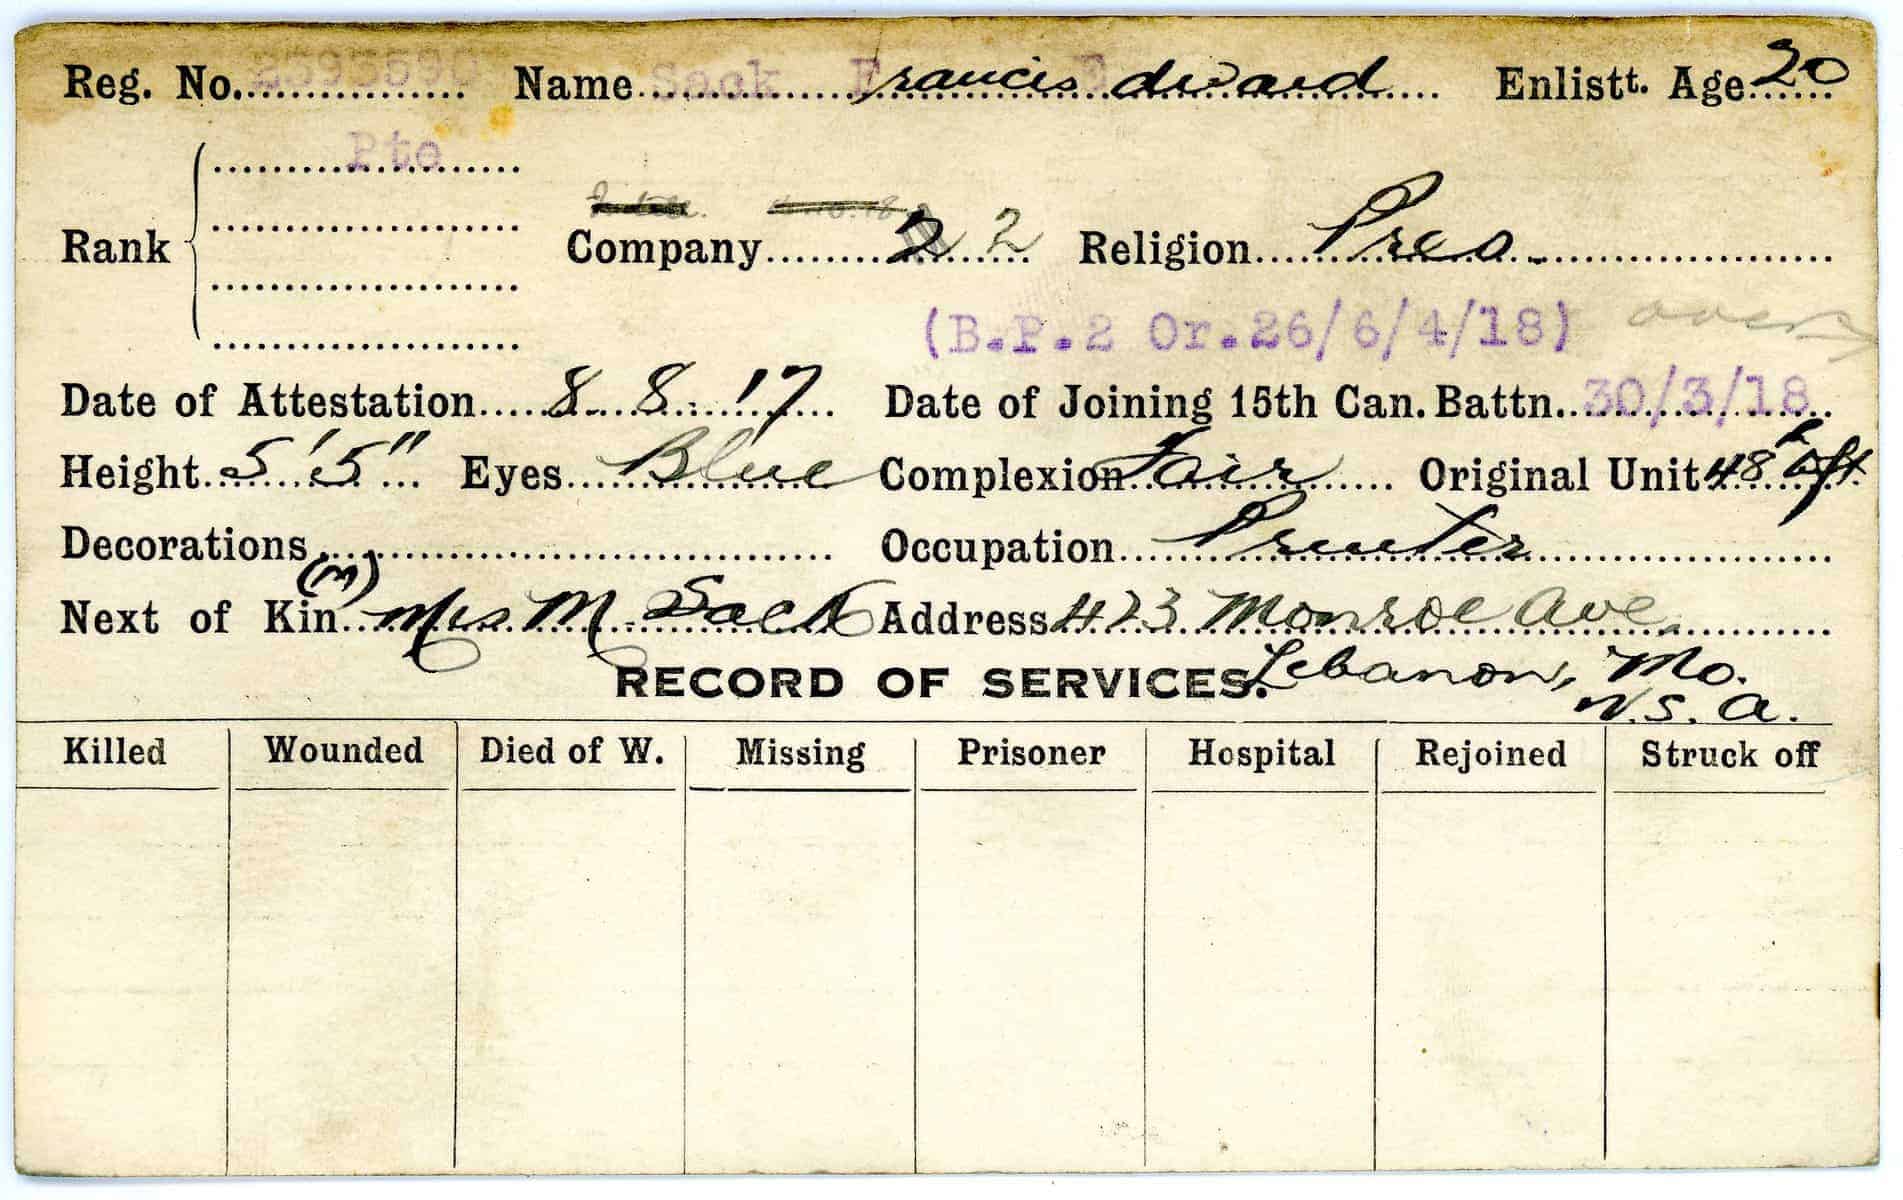 Reg. No. 2393590 Name Sack Francis Edward Enlistt. Age 20
Pte
Rank Company 2 2 Religion Pres.
(B.P.2 Or.26/6/4/18) over
Date of Attestation 8-8-'17 Date of Joining 15th Can. Battn. 30/3/18
Height 5'5" Eyes Blue Complexion Fair Original Unit 48th
Decorations Occupation Printer
Next of Kin (M) Mrs M. Sack Address 423 Monroe Ave.
Lebanon, Mo.
U.S.A.
RECORD OF SERVICES.
Killed Wounded Died of W. Missing Prisoner Hospital Rejoined Struck off